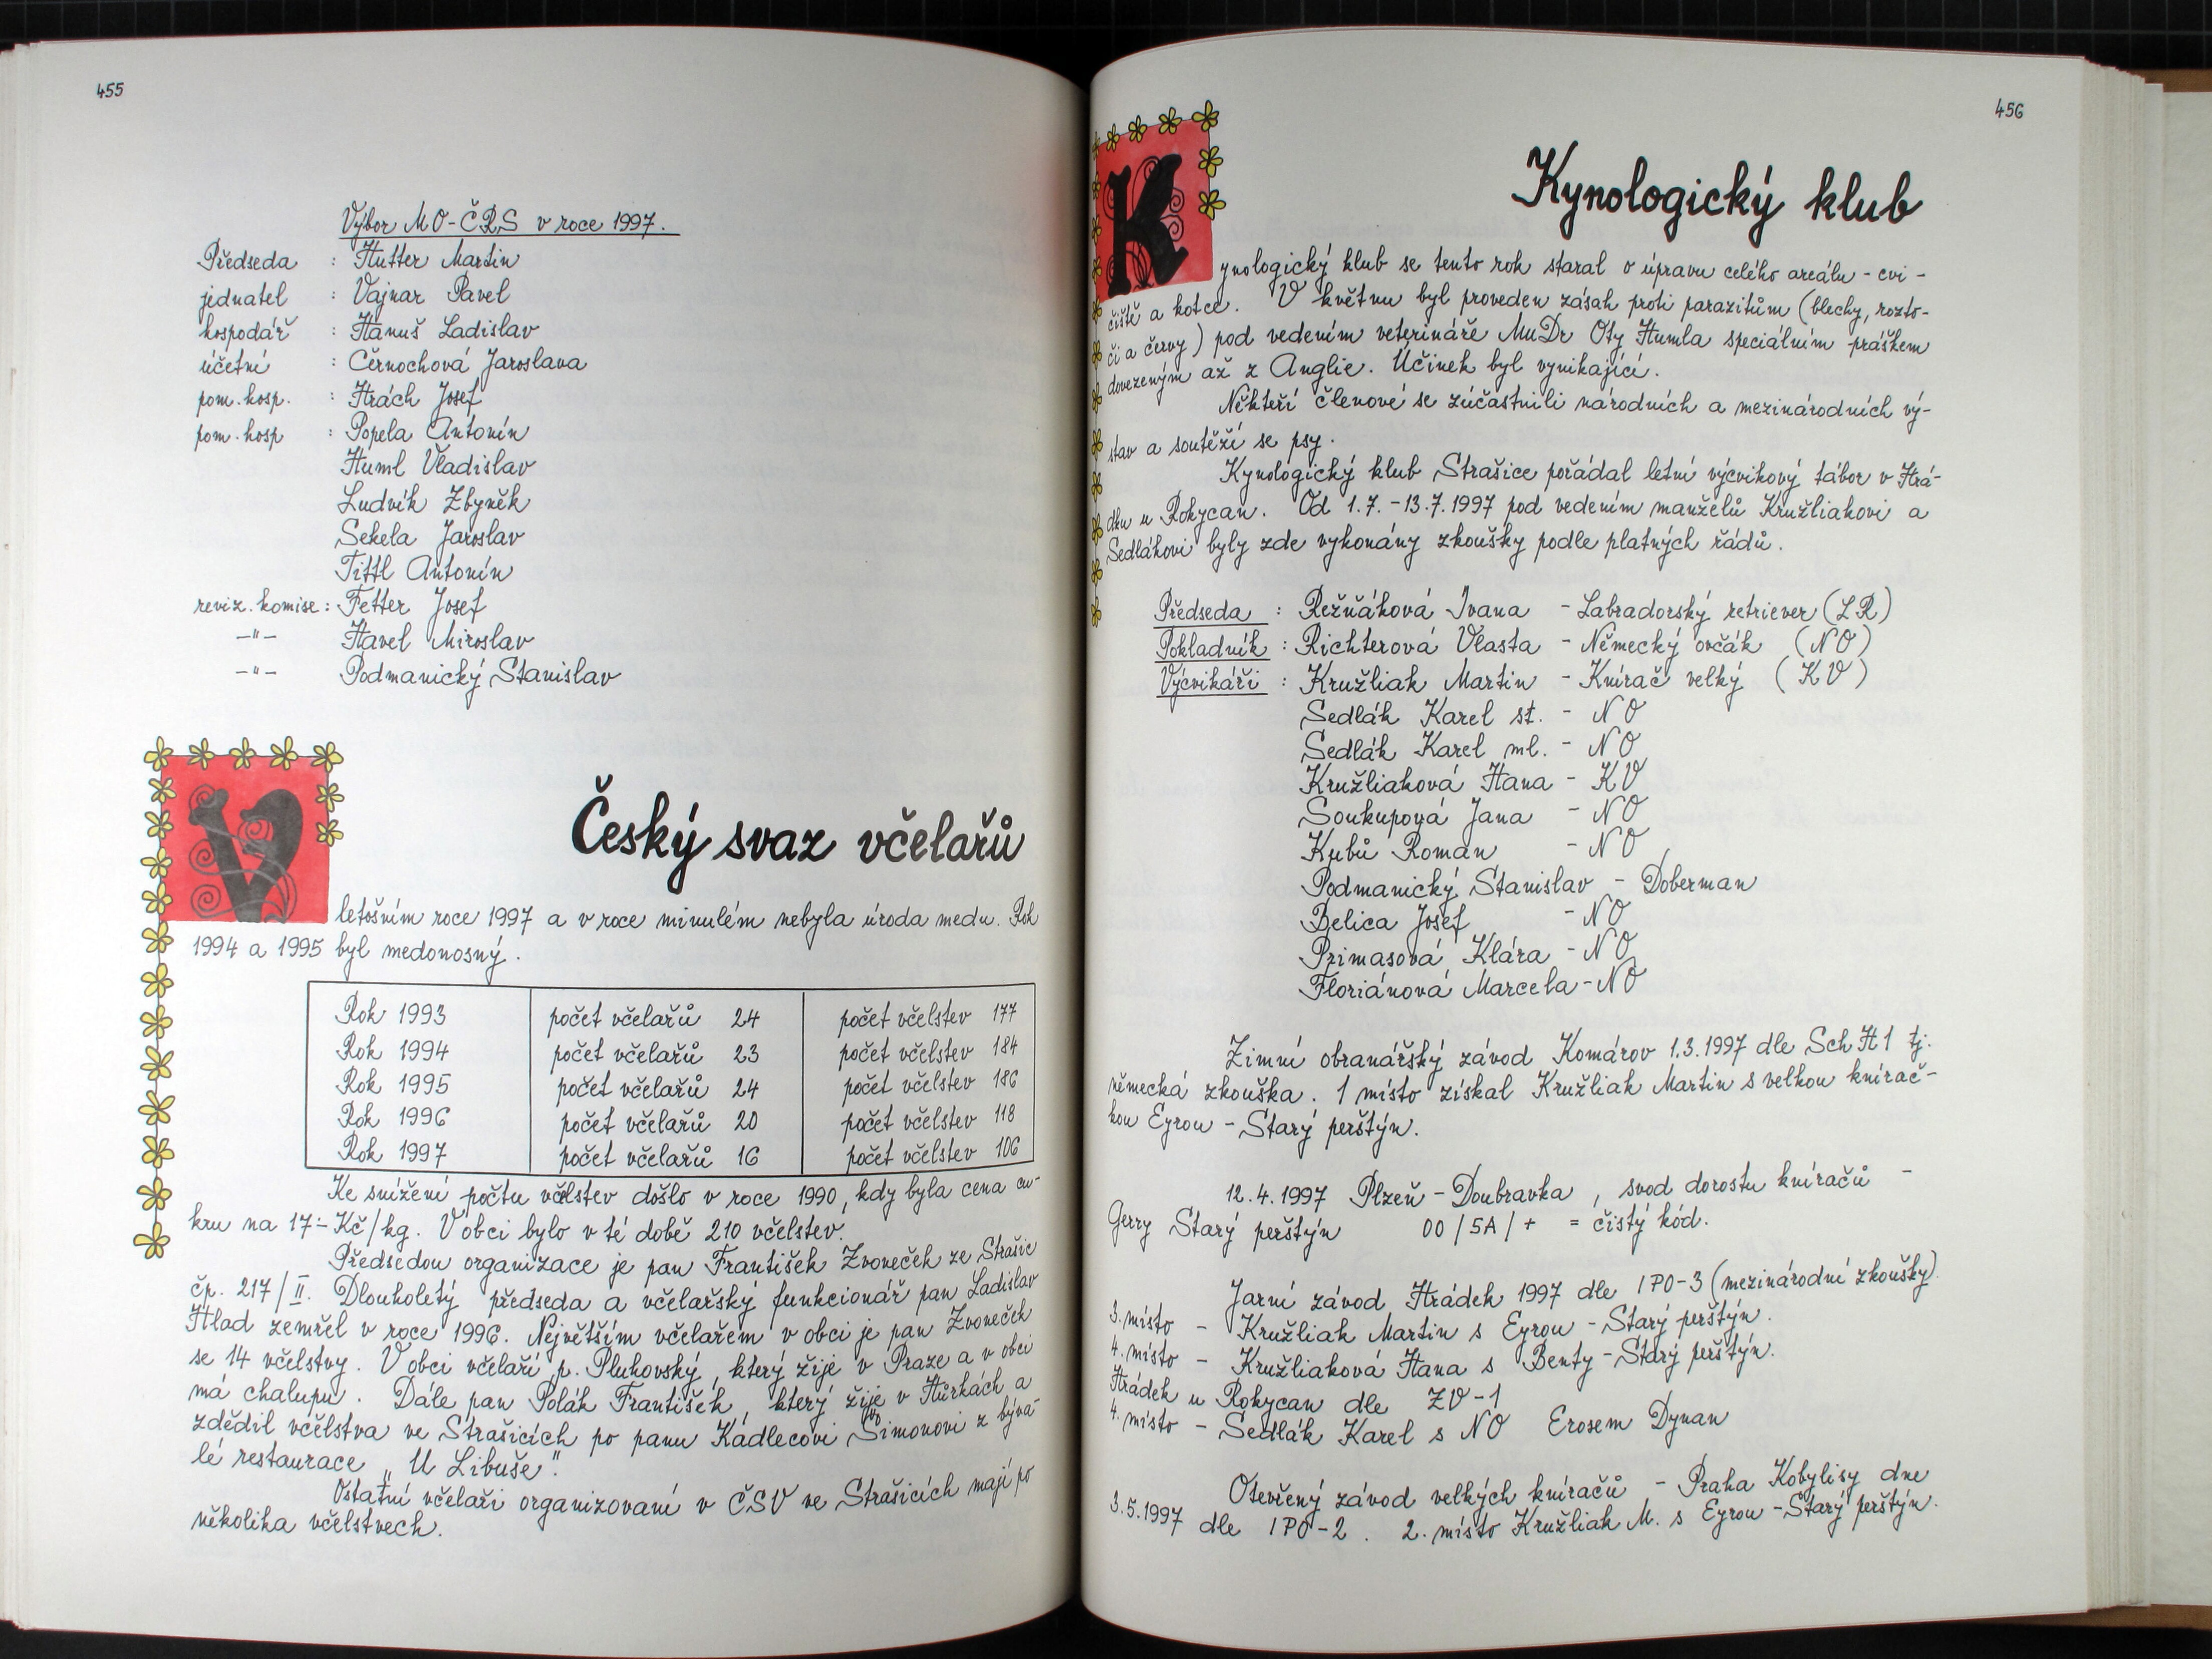 455
Výbor MO-ČRS v roce 1997.
Předseda : Hutter Martin
jednatel : Vajnar Pavel
hospodář : Hanuš Ladislav
účetní : Černochová Jaroslava
pom. hosp. : Hrách Josef
pom. hosp : Popela Antonín
Huml Vladislav
Ludvík Zbyněk
Sekela Jaroslav
Tittl Antonín
reviz. komise : Fetter Josef
-"- Havel Miroslav
-"- Podmanický Stanislav
Český svaz včelařů
V letošním roce 1997 a v roce minulém nebyla úroda medu. Rok
1994 a 1995 byl medonosný.
Rok 1993 počet včelařů 24 počet včelstev 177
Rok 1994 počet včelařů 23 počet včelstev 184
Rok 1995 počet včelařů 24 počet včelstev 186
Rok 1996 počet včelařů 20 počet včelstev 118
Rok 1997 počet včelařů 16 počet včelstev 106
Ke snížení počtu včelstev došlo v roce 1990, kdy byla cena cu-
kru na 17:- Kč/kg. V obci bylo v té době 210 včelstev.
Předsedou organizace je pan František Zvoneček ze Strašic
čp. 217/II. Dlouholetý předseda a včelařský funkcionář pan Ladislav
Hlad zemřel v roce 1996. Největším včelařem v obci je pan Zvoneček
se 14 včelstvy. V obci včelaří p. Pluhovský, který žije v Praze a v obci
má chalupu. Dále pan Polák František, který žije v Hůrkách a
zdědil včelstva ve Strašicích po panu Kadlecovi Šimonovi z býva-
lé restaurace „U Libuše".
Ostatní včelaři organizovaní v ČSV ve Strašicích mají po
několika včelstvech.
456
Kynologický klub
Kynologický klub se tento rok staral o úpravu celého areálu - cvi-
čiště a kotce. V květnu byl proveden zásah proti parazitům (blechy, rozto-
či a červy) pod vedením veterináře MuDr Oty Humla speciálním práškem
dovezeným až z Anglie. Účinek byl vynikající.
Někteří členové se zúčastnili národních a mezinárodních vý-
stav a soutěží se psy.
Kynologický klub Strašice pořádal letní výcvikový tábor v Hrá-
dku u Rokycan. Od 1.7.-13.7.1997 pod vedením manželů Kružliakovi a
Sedlákovi byly zde vykonány zkoušky podle platných řádů.
Předseda : Režňáková Ivana - Labradorský retriever (LR)
Pokladník : Richterová Vlasta - Německý ovčák (NO)
Výcvikáři : Kružliak Martin - Knírač velký (KV)
Sedlák Karel st. - NO
Sedlák Karel ml. - NO
Kružliaková Hana - KV
Soukupová Jana - NO
Kubů Roman - NO
Podmanický Stanislav - Doberman
Belica Josef - NO
Primasová Klára - NO
Floriánová Marcela - NO
Zimní obranářský závod Komárov 1.3.1997 dle SchH1 tj.
německá zkouška. 1 místo získal Kružliak Martin s velkou knírač-
kou Eyrou - Starý perštýn.
12.4.1997 Plzeň - Doubravka, svod dorostu kníračů -
Gerry Starý perštýn 00/5A/+ = čistý kód.
Jarní závod Hrádek 1997 dle IPO-3 (mezinárodní zkoušky)
3. místo - Kružliak Martin s Eyrou - Starý perštýn.
4. místo - Kružliaková Hana s Benty - Starý perštýn.
Hrádek u Rokycan dle ZV-1
4. místo - Sedlák Karel s NO Erosem Dynan
Otevřený závod velkých kníračů - Praha Kobylisy dne
3.5.1997 dle IPO-2. 2. místo Kružliak M. s Eyrou - Starý perštýn.